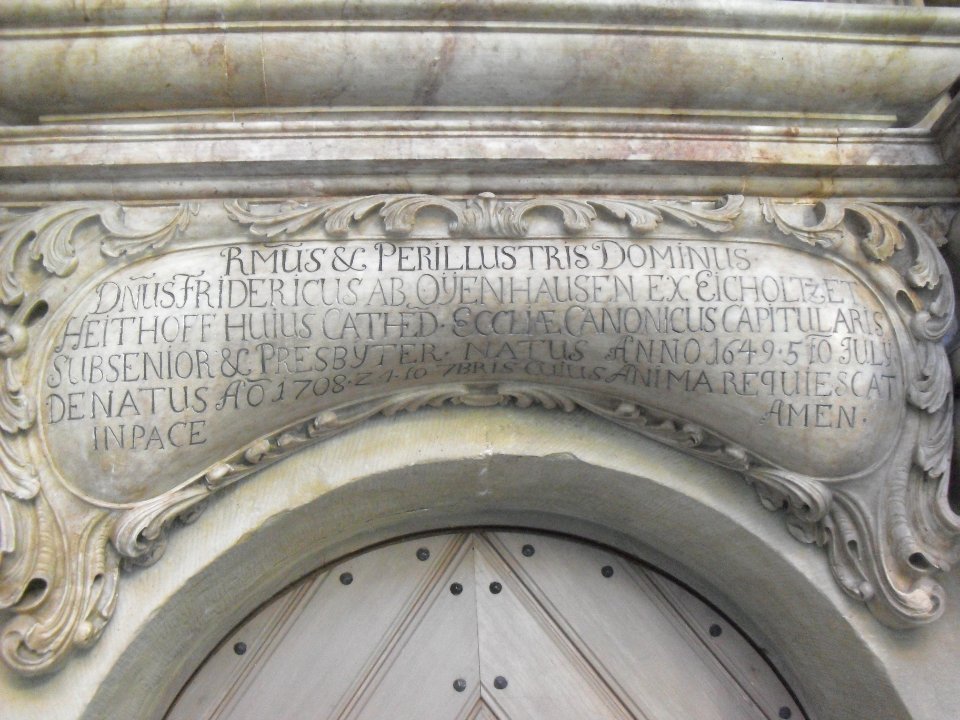 RM̄US & PERILLUSTRIS DOMINUS
DN̄US FRIDERICUS AB OŸENHAUSEN EX EICHOLTZ ET
HEITHOFF HUIUS CATHED. ECCLIÆ CANONICUS CAPITULARIS
SUBSENIOR & PRESBYTER. NATUS ANNO 1649. 5 IO JULY
DENATUS AO 1708. Z1. IO 7BRIS CUIUS ANIMA REQUIESCAT
IN PACE AMEN.